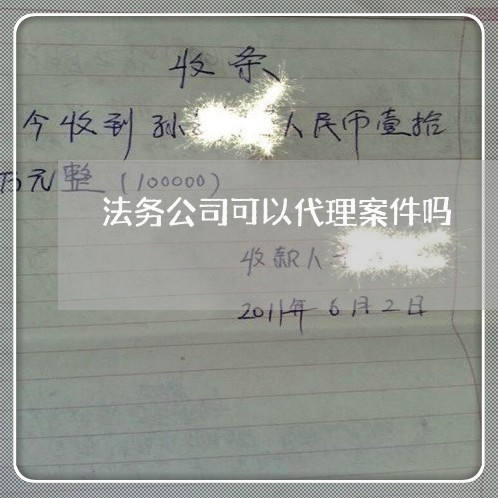 收条
今收到孙 人民币壹拾
万元整(100000)
法务公司可以代理案件吗
收款人
2011年6月2日